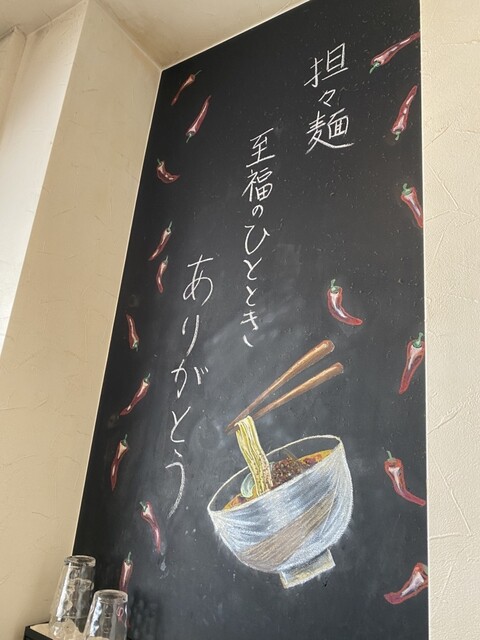 担々麺
至福のひととき
ありがとう